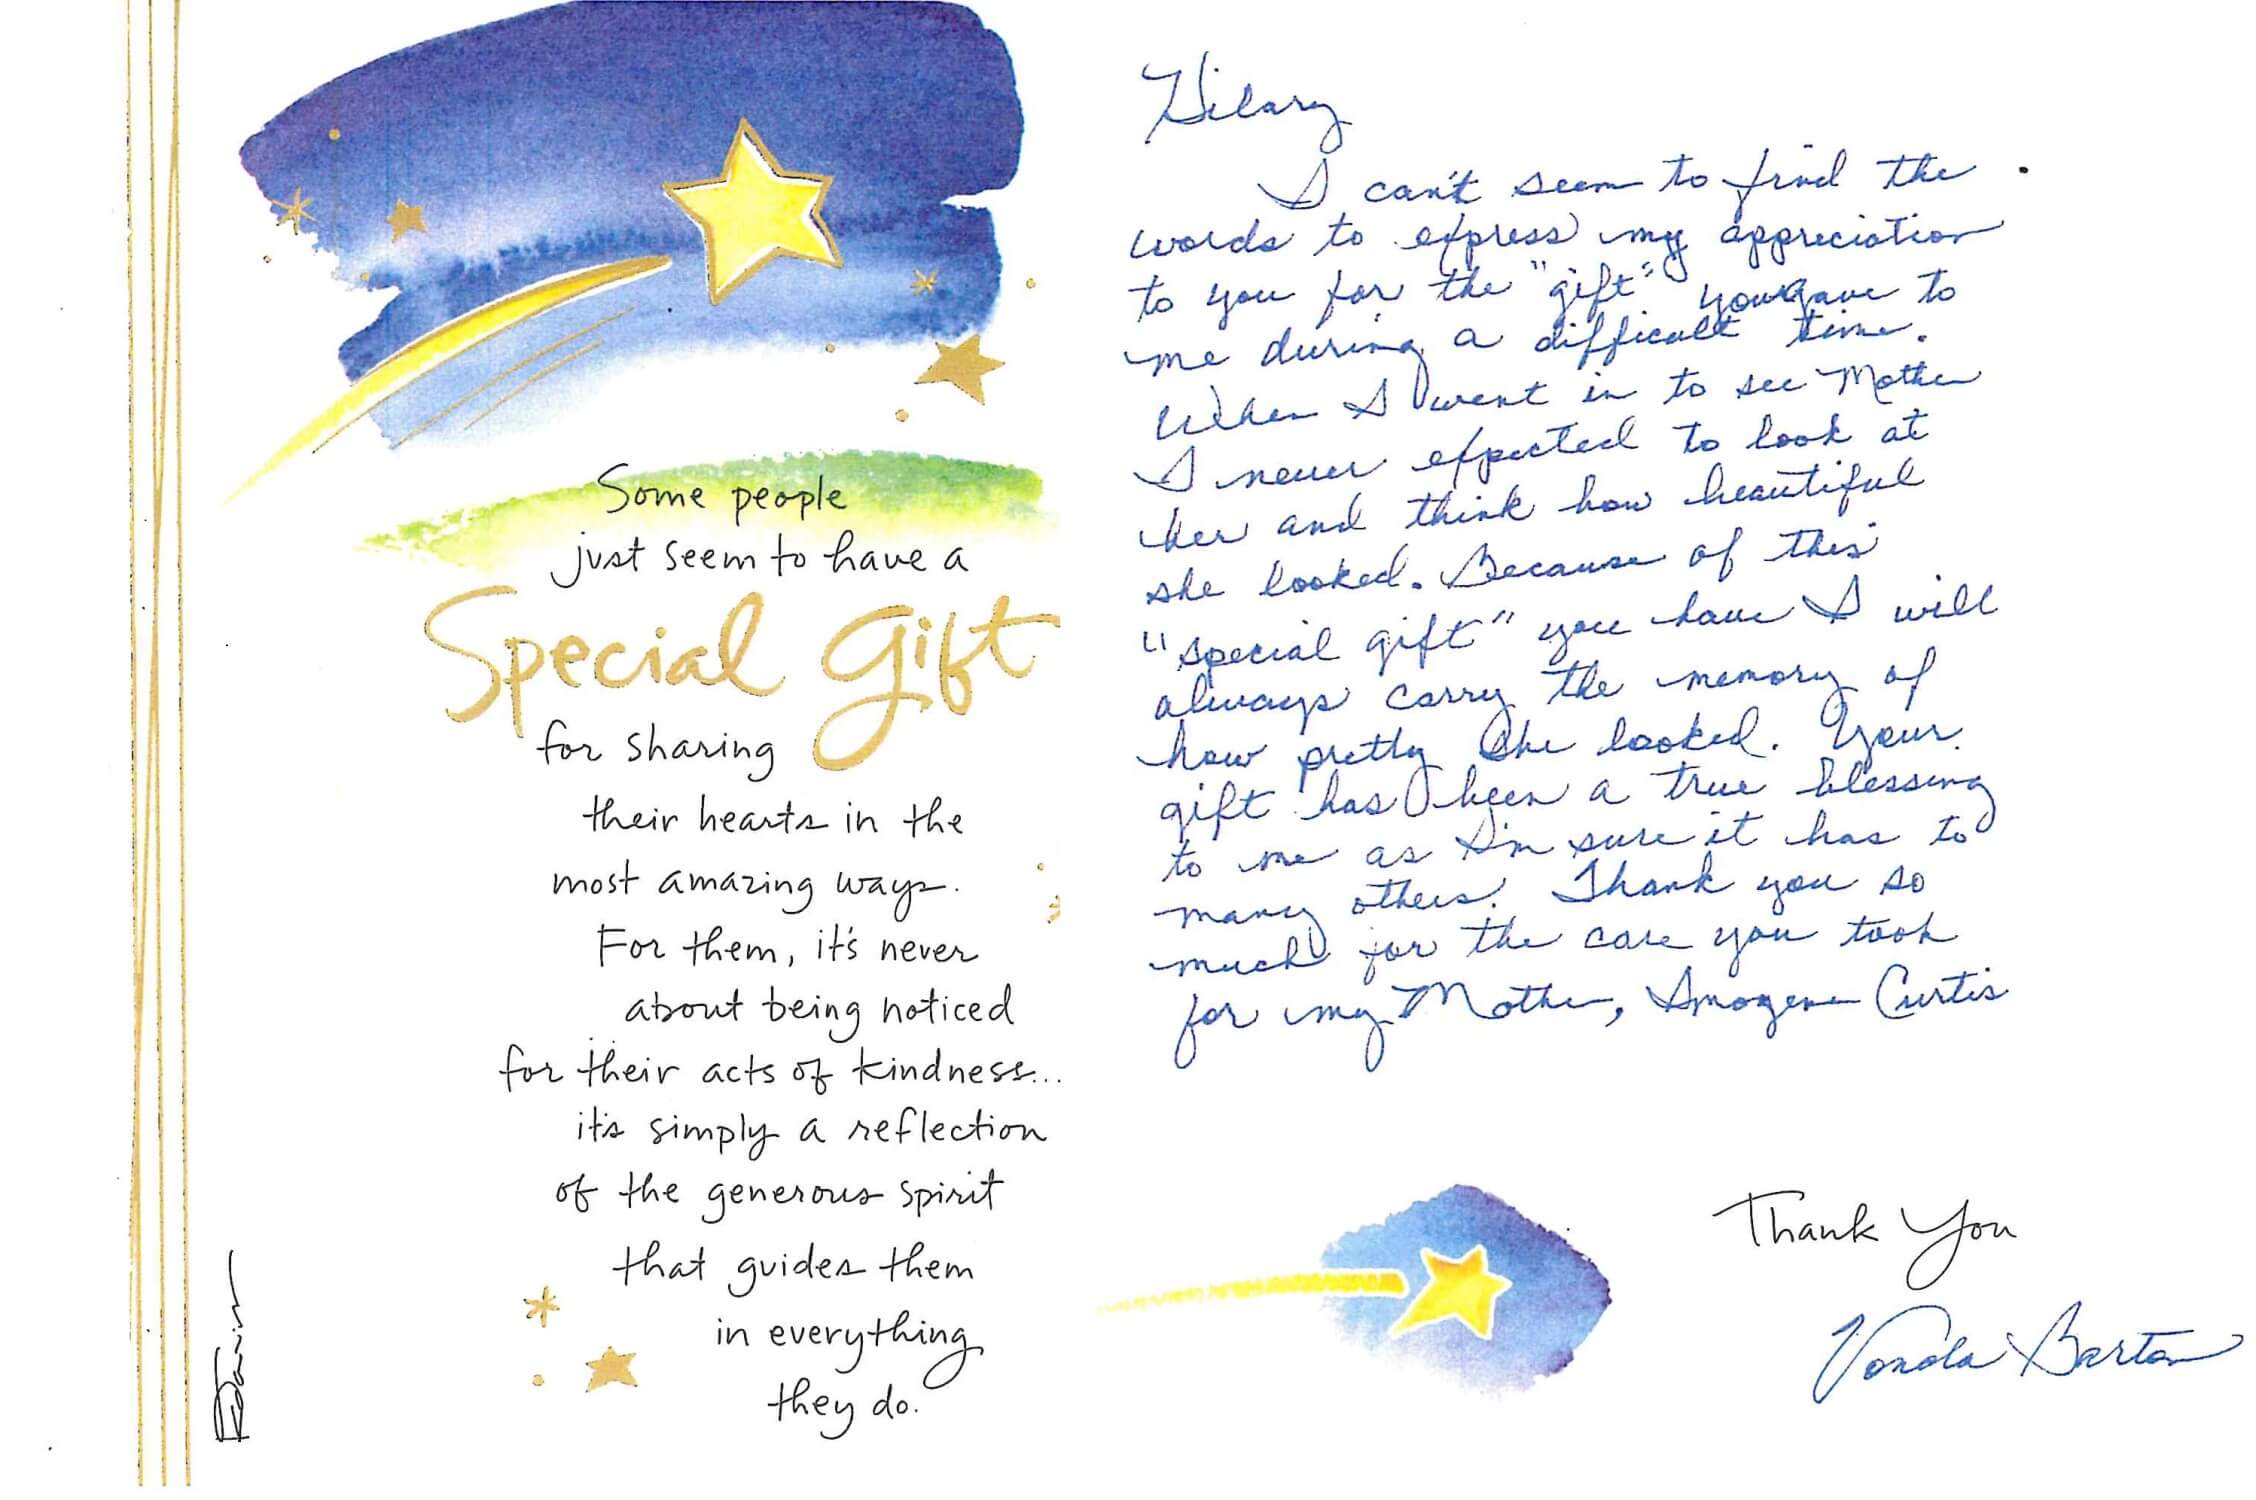 Some people
just seem to have a
Special Gift
for sharing
their hearts in the
most amazing ways.
For them, it's never
about being noticed
for their acts of kindness...
it's simply a reflection
of the generous spirit
that guides them
in everything
they do.
Hilary
I can't seem to find the
words to express my appreciation
to you for the "gift" you gave to
me during a difficult time.
When I went in to see Mother
I never expected to look at
her and think how beautiful
she looked. Because of this
"special gift" you have I will
always carry the memory of
how pretty she looked. Your
gift has been a true blessing
to me as I'm sure it has to
many others. Thank you so
much for the care you took
for my Mother, Imogene Curtis
Thank You
Vonda Barton